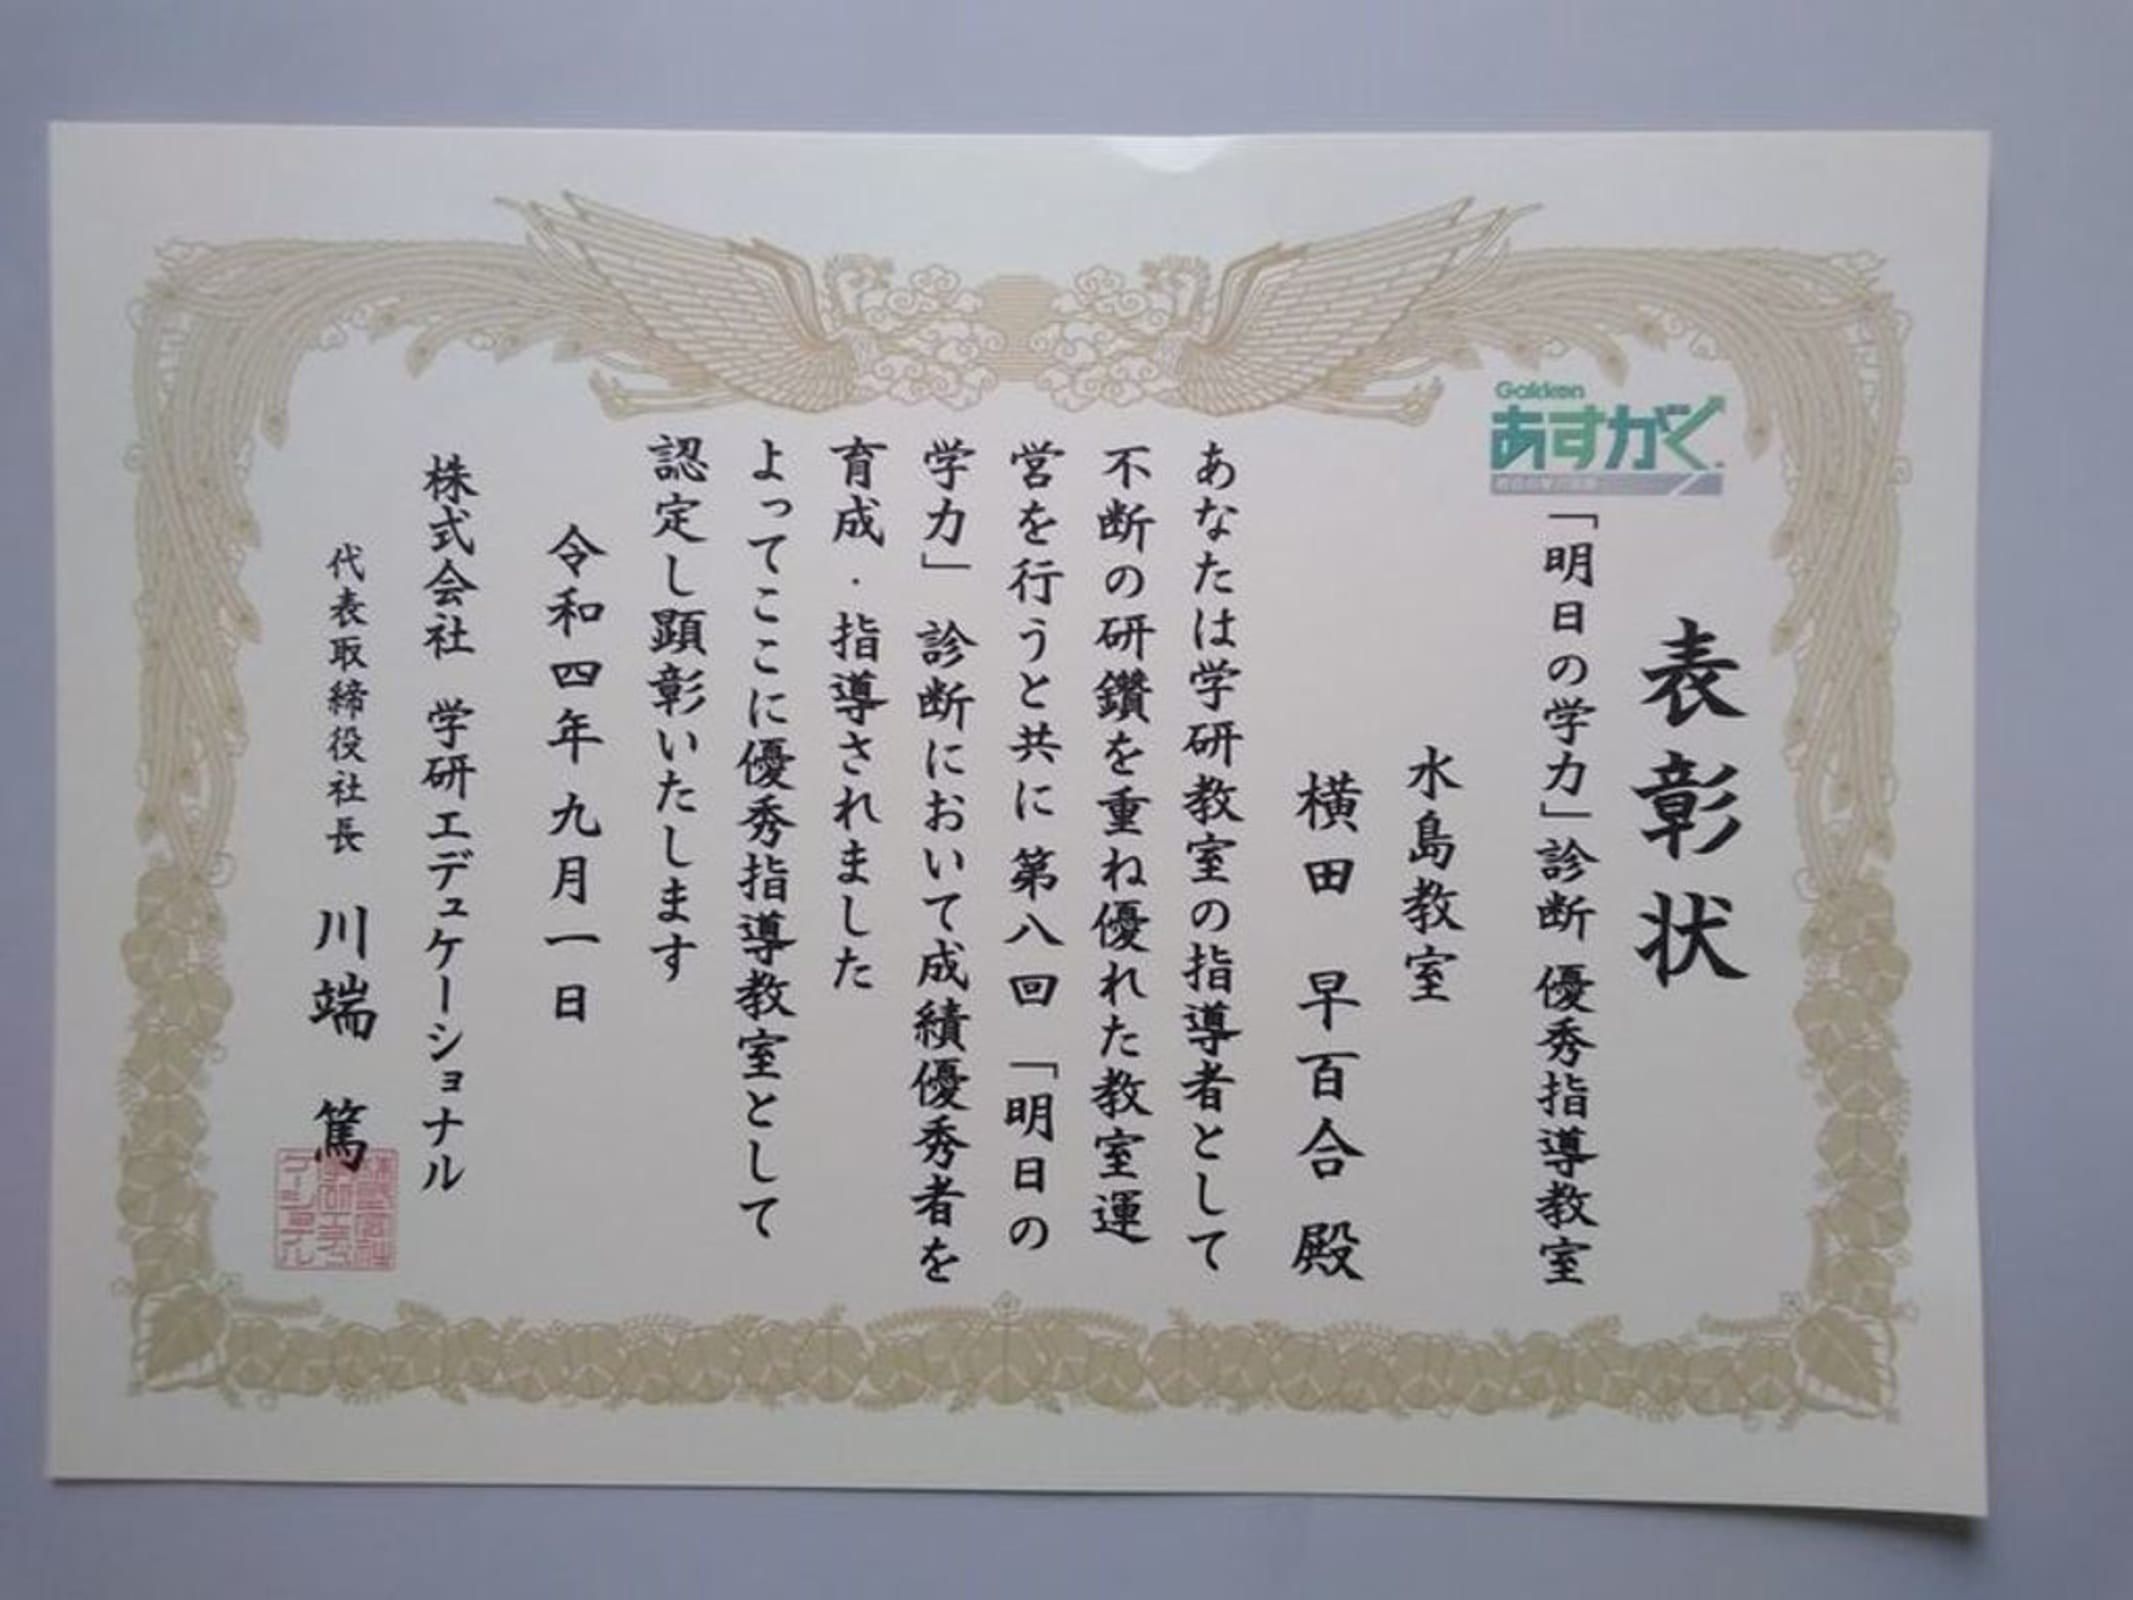 表彰状
Gakken
あすがく
「明日の学力」診断 優秀指導教室
水島教室
横田 早百合 殿
あなたは学研教室の指導者として
不断の研鑽を重ね優れた教室運
営を行うと共に第八回「明日の
学力」診断において成績優秀者を
育成・指導されました
よってここに優秀指導教室として
認定し顕彰いたします
令和四年九月一日
株式会社 学研エデュケーショナル
代表取締役社長 川端 篤